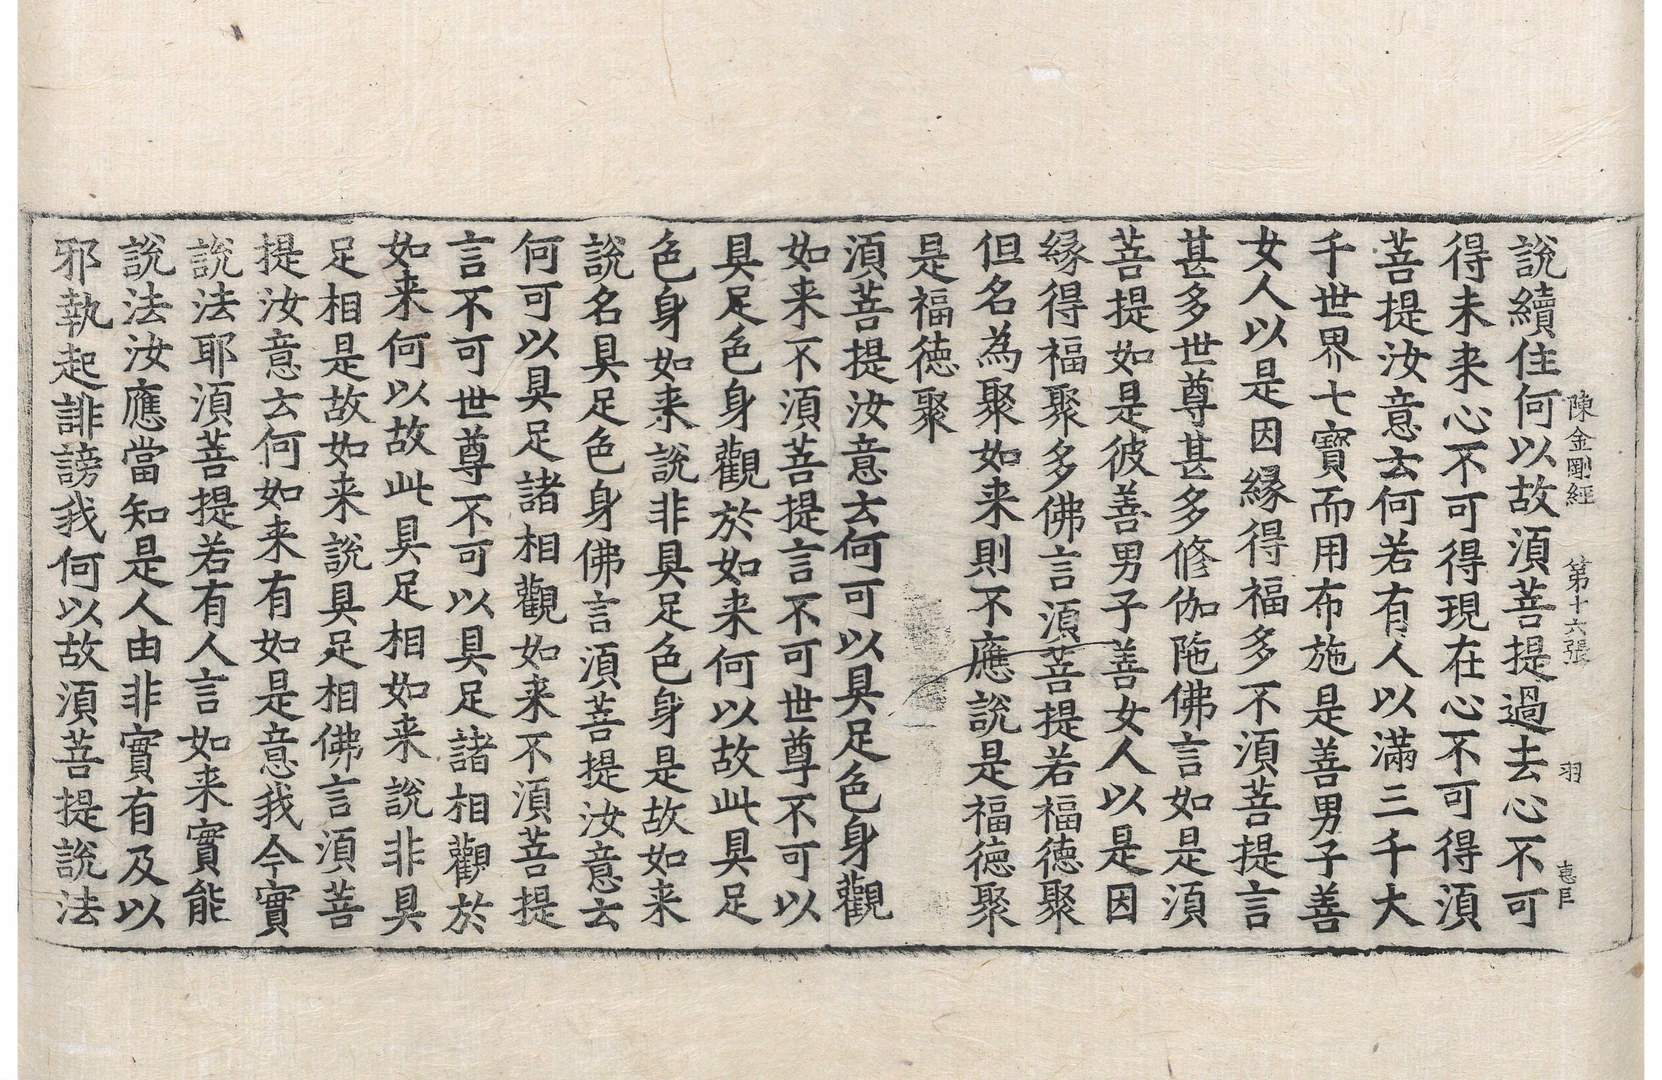 陳金剛經　第十六張　羽　惠巨
說續住何以故須菩提過去心不可
得未来心不可得現在心不可得須
菩提汝意去何若有人以滿三千大
千世界七寶而用布施是善男子善
女人以是因緣得福多不須菩提言
甚多世尊甚多修伽陁佛言如是須
菩提如是彼善男子善女人以是因
緣得福聚多佛言須菩提若福德聚
但名為聚如来則不應說是福德聚
是福德聚
須菩提汝意去何可以具足色身觀
如来不須菩提言不可世尊不可以
具足色身觀於如来何以故此具足
色身如来說非具足色身是故如来
說名具足色身佛言須菩提汝意去
何可以具足諸相觀如来不須菩提
言不可世尊不可以具足諸相觀於
如来何以故此具足相如来說非具
足相是故如来說具足相佛言須菩
提汝意去何如来有如是意我今實
說法耶須菩提若有人言如来實能
說法汝應當知是人由非實有及以
邪執起誹謗我何以故須菩提說法